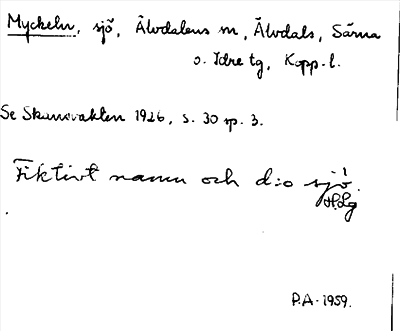 Myckeln, sjö, Älvdalens m, Älvdals, Särna
o. Idre tg, Kopp. l.
Se Skansvakten 1926, s. 30 sp. 3.
Fiktivt namn och d:o sjö!
P.A. 1959.